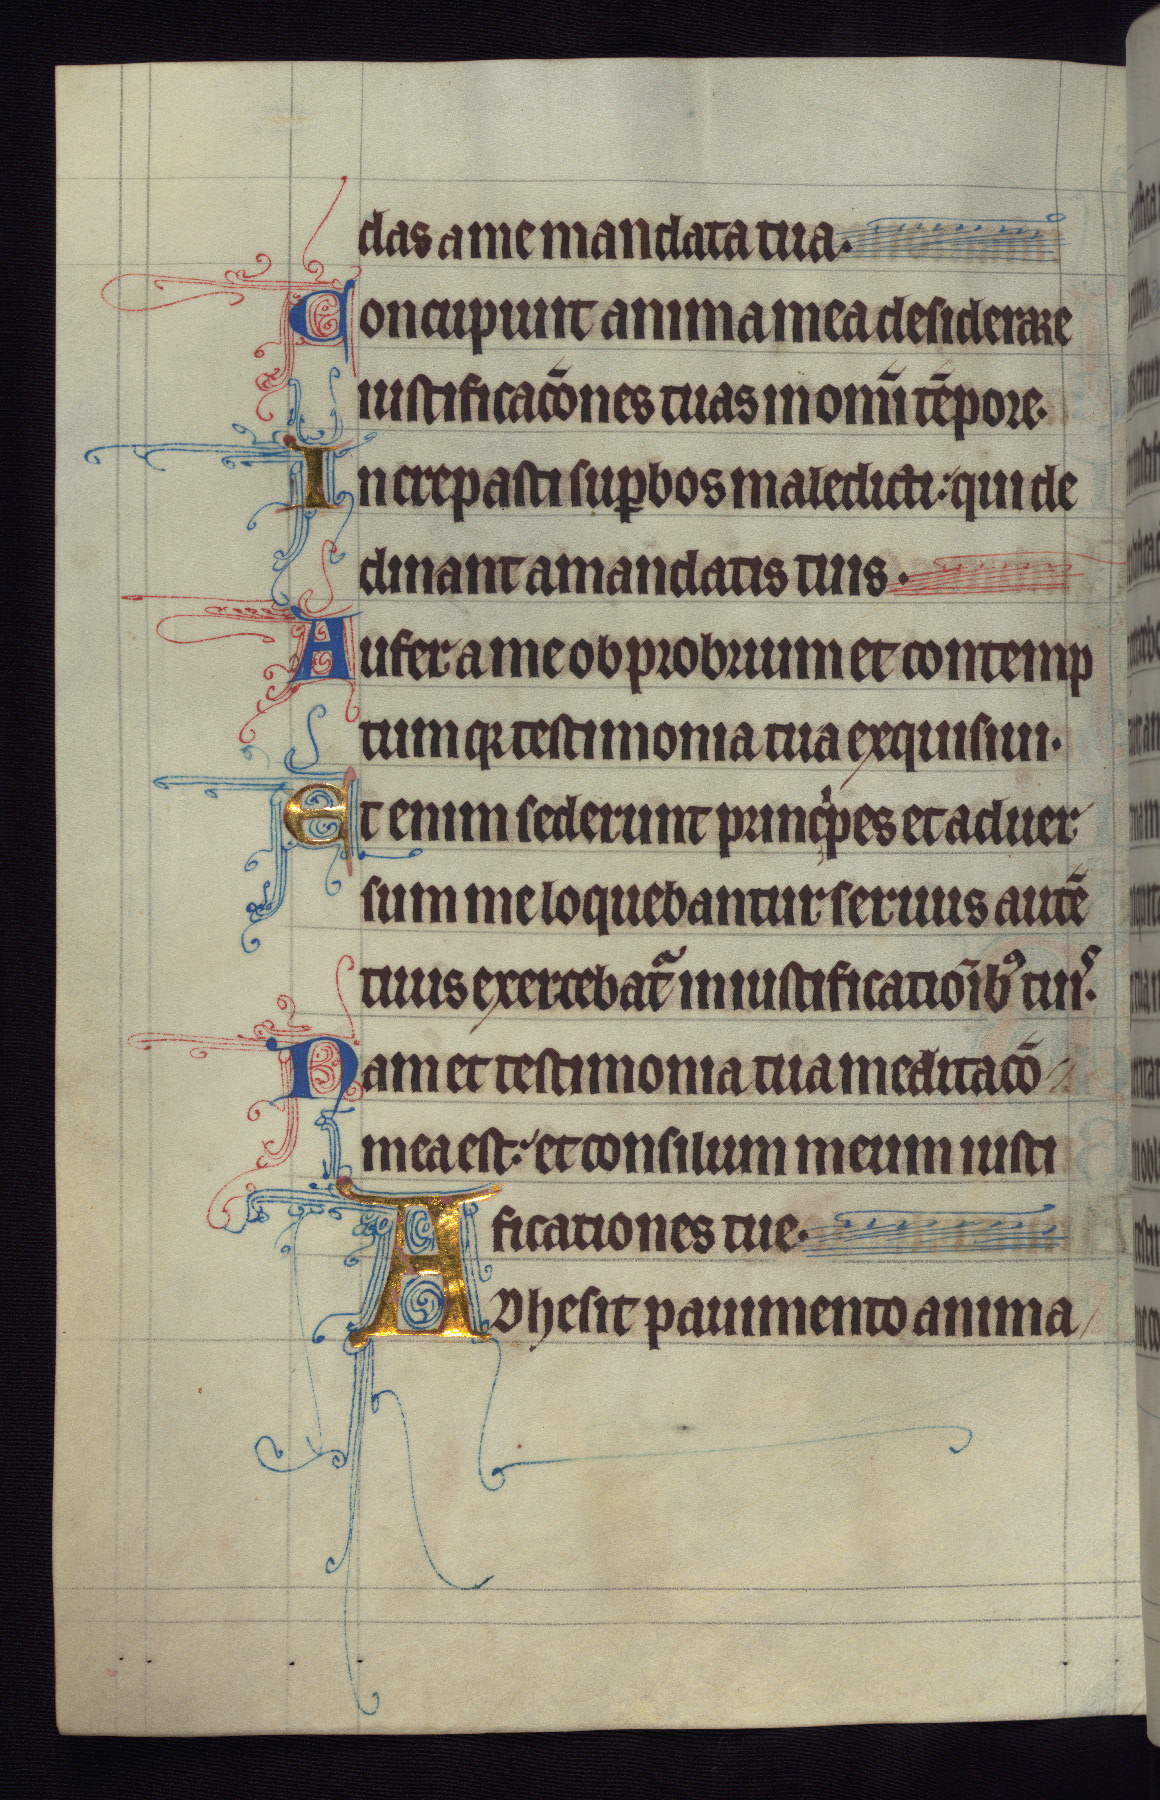 das a me mandata tua.
Concupiuit anima mea desiderare
iustificac̄ōnes tuas in om̄i tēpore.
Increpasti sup̱bos maledicti: qui de
clinant a mandatis tuis.
Aufer a me obprobrium et contemp
tum qꝛ testimonia tua exquisiui.
Et enim sederunt princ̍pes et aduer
sum me loquebantur seruus autē
tuus exercebat᷑ in iustificatiōibꝰ tuiˢ.
Nam et testimonia tua meditac̄ō
mea est: et consilium meum iusti
ficationes tue.
ADhesit pauimento anima